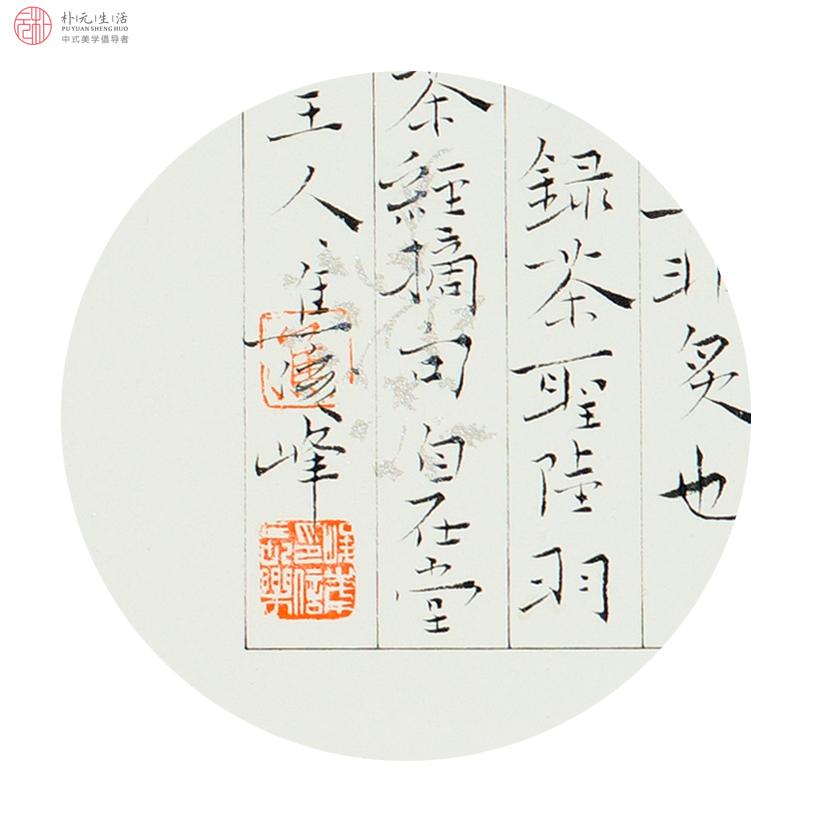 朴元生活
PUYUAN SHENG HUO
中式美学倡导者
非炙也
録茶聖陸羽
茶經摘句自在堂
主人崔漢峰